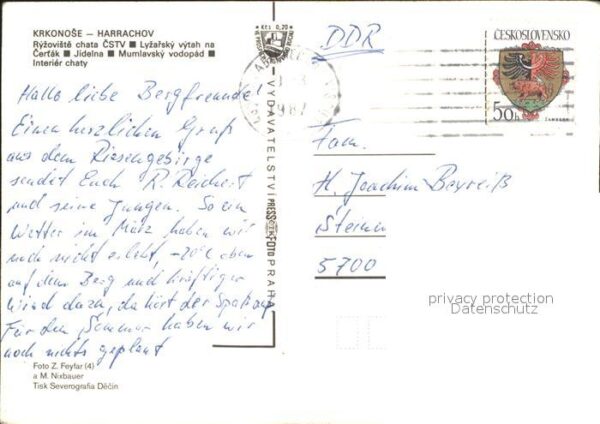 KRKONOŠE – HARRACHOV
Rýžoviště chata ČSTV ■ Lyžařský výtah na
Čerťák ■ Jídelna ■ Mumlavský vodopád ■
Interiér chaty
Hallo liebe Bergfreunde!
Einen herzlichen Gruß
aus dem Riesengebirge
sendet Euch R. Reichert
und seine Jungen. So ein
Wetter im März haben wir
noch nicht erlebt, -20°C oben
auf dem Berg und kräftiger
Wind dazu, da hört der Spaß auf
Für den Sommer haben wir
noch nichts geplant
Foto Z. Feyfar (4)
a M. Nixbauer
Tisk Severografia Děčín
Kčs 0,20
VYDAVATELSTVÍ PRESSFOTO PRAHA
DDR
ČESKOSLOVENSKO
50h
Fam.
H. Joachim Beyreiß
5700
privacy protection
Datenschutz